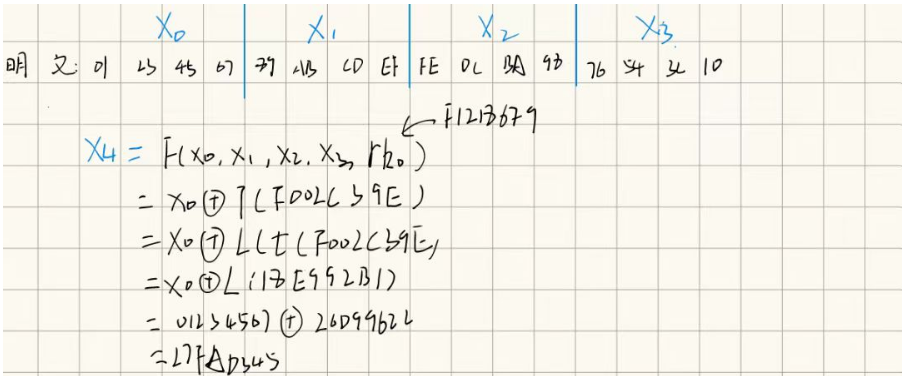 X₀ X₁ X₂ X₃
明 文: 01 23 45 67 89 AB CD EF FE DC BA 98 76 54 32 10
← F12186F9
X4 = F(X₀, X₁, X₂, X₃, rk₀)
= X₀ ⊕ T(F002C39E)
= X₀ ⊕ L(t(F002C39E)
= X₀ ⊕ L(18E992B1)
= 01234567 ⊕ 26D99622
= 27FAD345